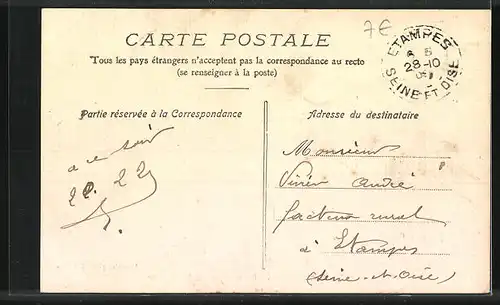 7€
CARTE POSTALE
Tous les pays étrangers n'acceptent pas la correspondance au recto
(se renseigner à la poste)
ETAMPES
28-10
SEINE-ET-OISE
Partie réservée à la Correspondance
Adresse du destinataire
a ce soir
Monsieur
André
facteur rural
à Etampes
(Seine-et-Oise)